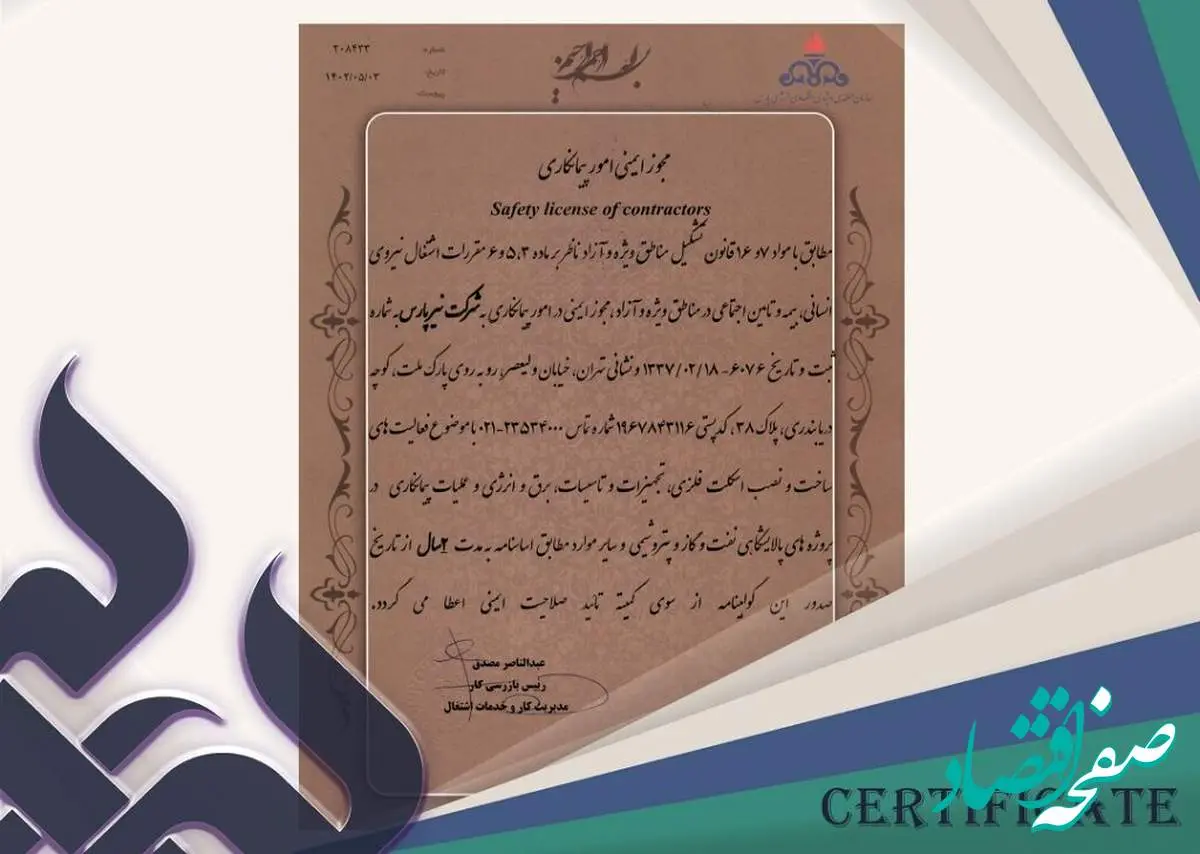 ۲۰۸۴۳۳ شماره:
۱۴۰۲/۰۵/۰۳ تاریخ:
پیوست:
بسم الله الرحمن الرحیم
سازمان منطقه ویژه اقتصادی انرژی پارس
مجوز ایمنی امور پیمانکاری
Safety license of contractors
مطابق با مواد ۷ و ۱۶ قانون تشکیل مناطق ویژه و آزاد ناظر بر ماده ۵،۳ و ۶ مقررات اشتغال نیروی
انسانی، بیمه و تامین اجتماعی در مناطق ویژه و آزاد، مجوز ایمنی در امور پیمانکاری به شرکت نیرپارس به شماره
ثبت و تاریخ ۶۰۷۶ - ۱۳۳۷/۰۲/۱۸ و نشانی تهران، خیابان ولیعصر، رو به روی پارک ملت، کوچه
دریابندری، پلاک ۳۸، کدپستی ۱۹۶۷۸۴۳۱۱۶ شماره تماس ۲۳۵۳۴۰۰۰-۰۲۱ با موضوع فعالیت های
ساخت و نصب اسکلت فلزی، تجهیزات و تاسیسات، برق و انرژی و عملیات پیمانکاری در
پروژه های پالایشگاهی نفت و گاز و پتروشیمی و سایر موارد مطابق اساسنامه به مدت ۲سال از تاریخ
صدور این گواهینامه از سوی کمیته تائید صلاحیت ایمنی اعطا می گردد.
عبدالناصر مصدق
رئیس بازرسی کار
مدیریت کار و خدمات اشتغال
صفحه اقتصاد
CERTIFICATE